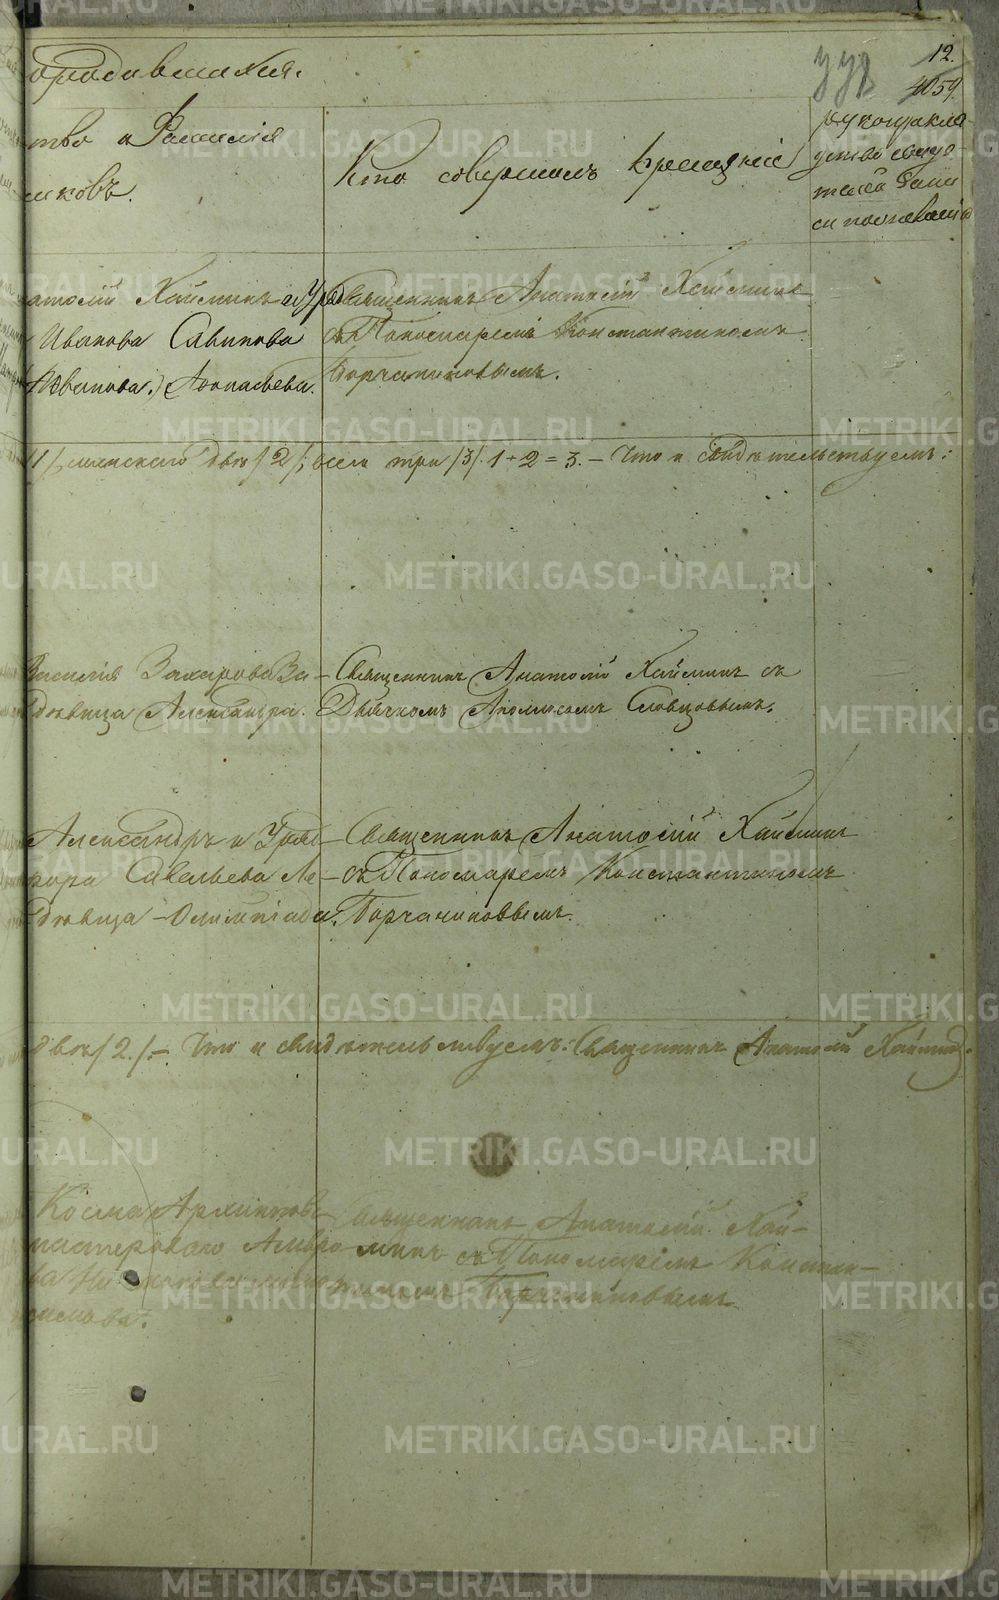 о родившихся.
12.
1059.
ство и Фамилія
никовъ.
Кто совершалъ крещеніе
рукоприкла
дство свидѣ
телей запи
си по желанію
атолій Хайминъ и Уряд
Иванова Савинова
Иванова.) Аѳонасьева.
Священникъ Анатолій Хайминъ
съ Пономаремъ Константиномъ
Борчаниновымъ.
/1/, женскаго двѣ /2/, всего три /3/. 1 + 2 = 3. – Что и свидѣтельствуемъ:
Василія Захарова За-
дѣвица Александра.
Священникъ Анатолій Хайминъ съ
Дьячкомъ Аполлосомъ Словцовымъ.
Александръ и Уряд-
Савельева
дѣвица Олимпіада.
Священникъ Анатолій Хайминъ
съ Пономаремъ Константиномъ
Борчаниновымъ.
двѣ /2/. – Что и свидѣтельствуемъ: Священникъ Анатолій Хайминъ.
Косма Архиповъ
мастероваго
Священникъ Анатолій Хай-
минъ съ Пономаремъ Констан-
тиномъ Борчаниновымъ
METRIKI.GASO-URAL.RU